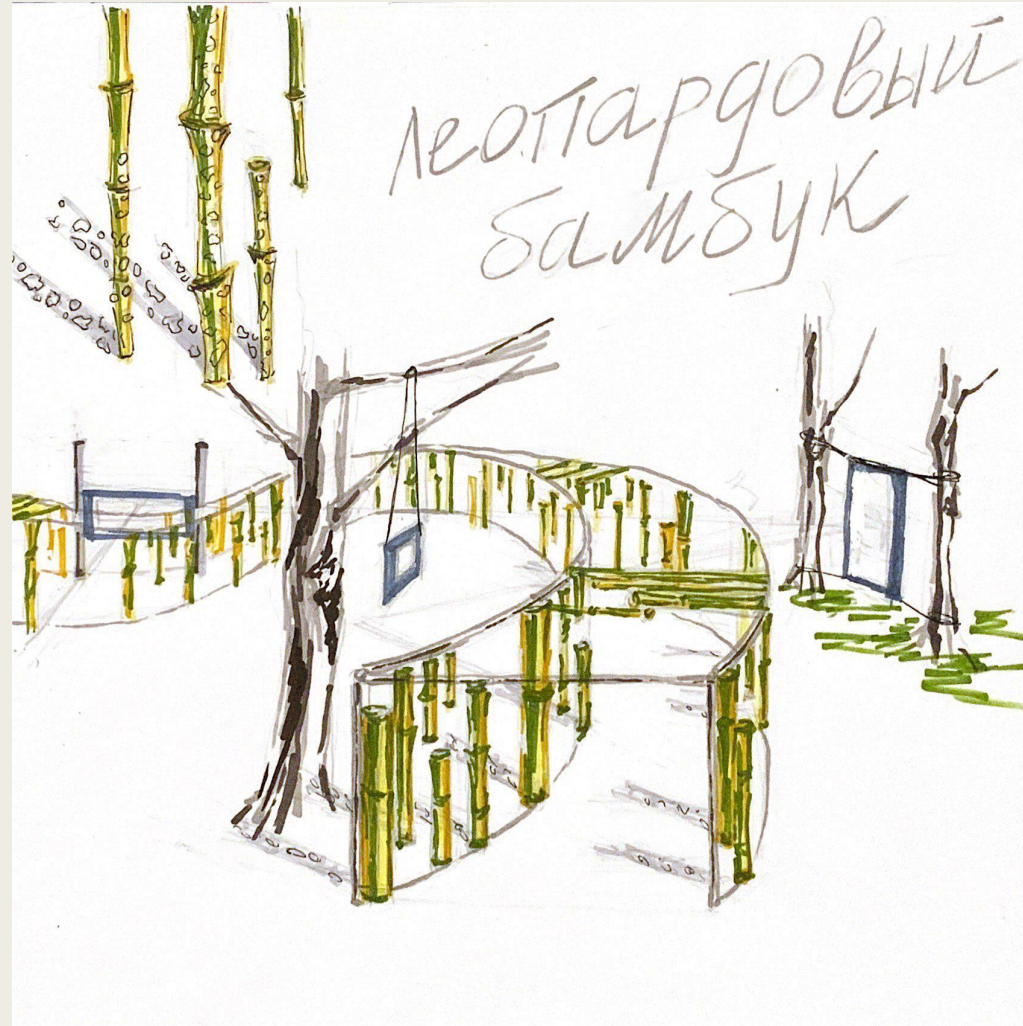 леопардовый
бамбук